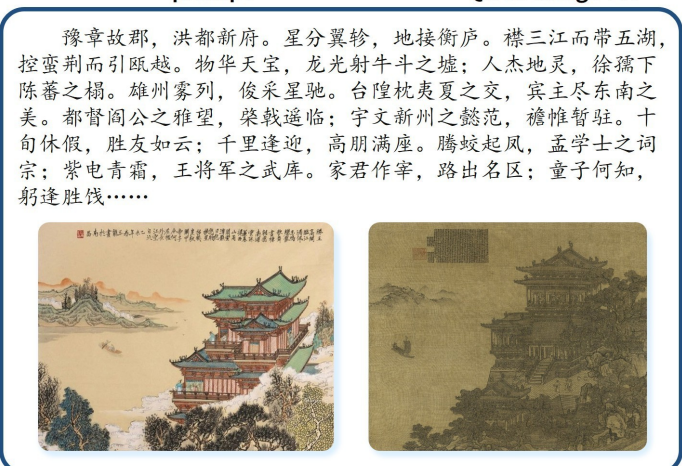 豫章故郡，洪都新府。星分翼轸，地接衡庐。襟三江而带五湖，
控蛮荆而引瓯越。物华天宝，龙光射牛斗之墟；人杰地灵，徐孺下
陈蕃之榻。雄州雾列，俊采星驰。台隍枕夷夏之交，宾主尽东南之
美。都督阎公之雅望，棨戟遥临；宇文新州之懿范，襜帷暂驻。十
旬休假，胜友如云；千里逢迎，高朋满座。腾蛟起凤，孟学士之词
宗；紫电青霜，王将军之武库。家君作宰，路出名区；童子何知，
躬逢胜饯……